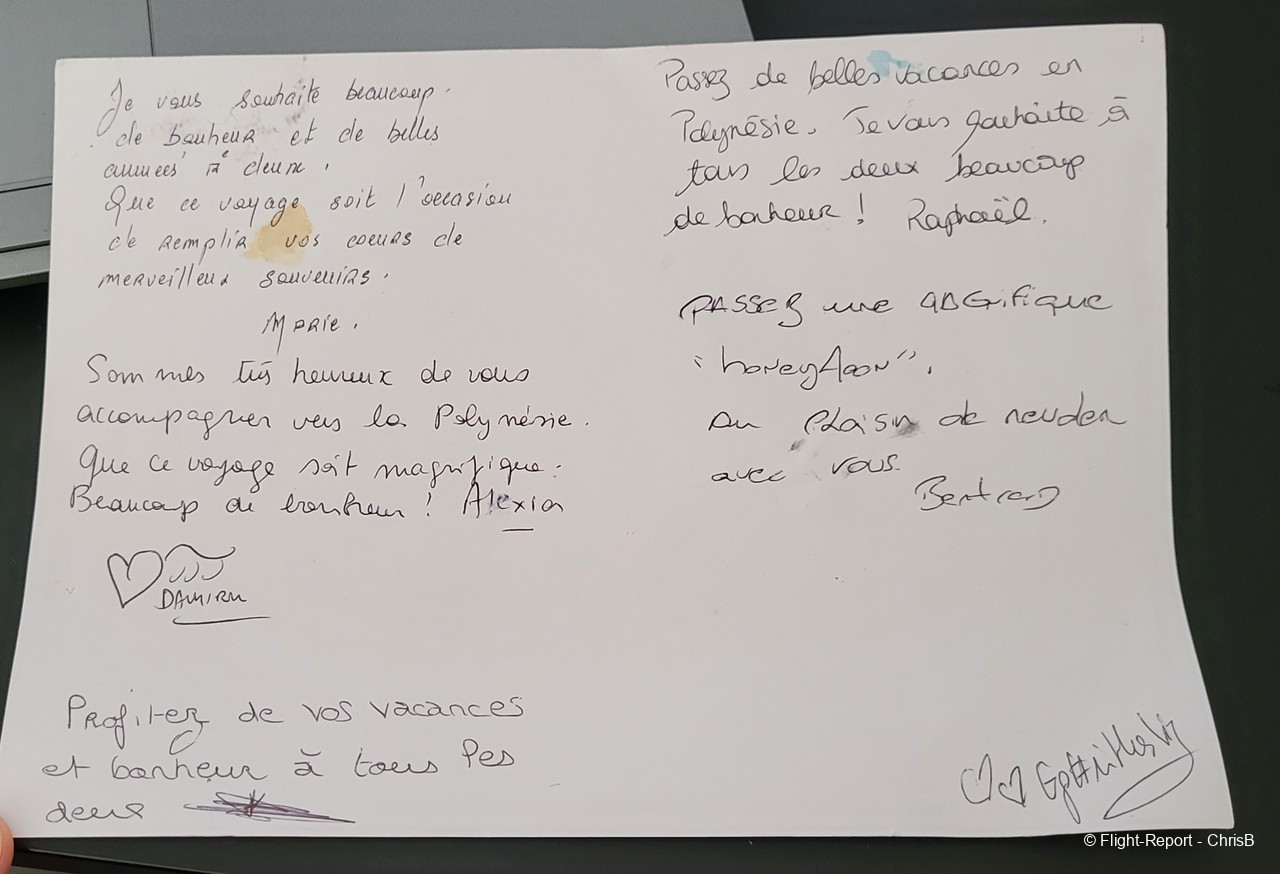 Je vous souhaite beaucoup
de bonheur et de belles
années à deux.
Que ce voyage soit l'occasion
de remplir vos coeurs de
merveilleux souvenirs.
Marie.
Sommes très heureux de vous
accompagner vers la Polynésie.
Que ce voyage soit magnifique.
Beaucoup de bonheur ! Alexia
DAMIEN
Profitez de vos vacances
et bonheur à tous les
deux
Passez de belles vacances en
Polynésie. Je vous souhaite à
tous les deux beaucoup
de bonheur ! Raphaël.
PASSEZ une MAGnifique
"honeyMoon".
Au plaisir de revoler
avec vous.
Bertrand
© Flight-Report - ChrisB